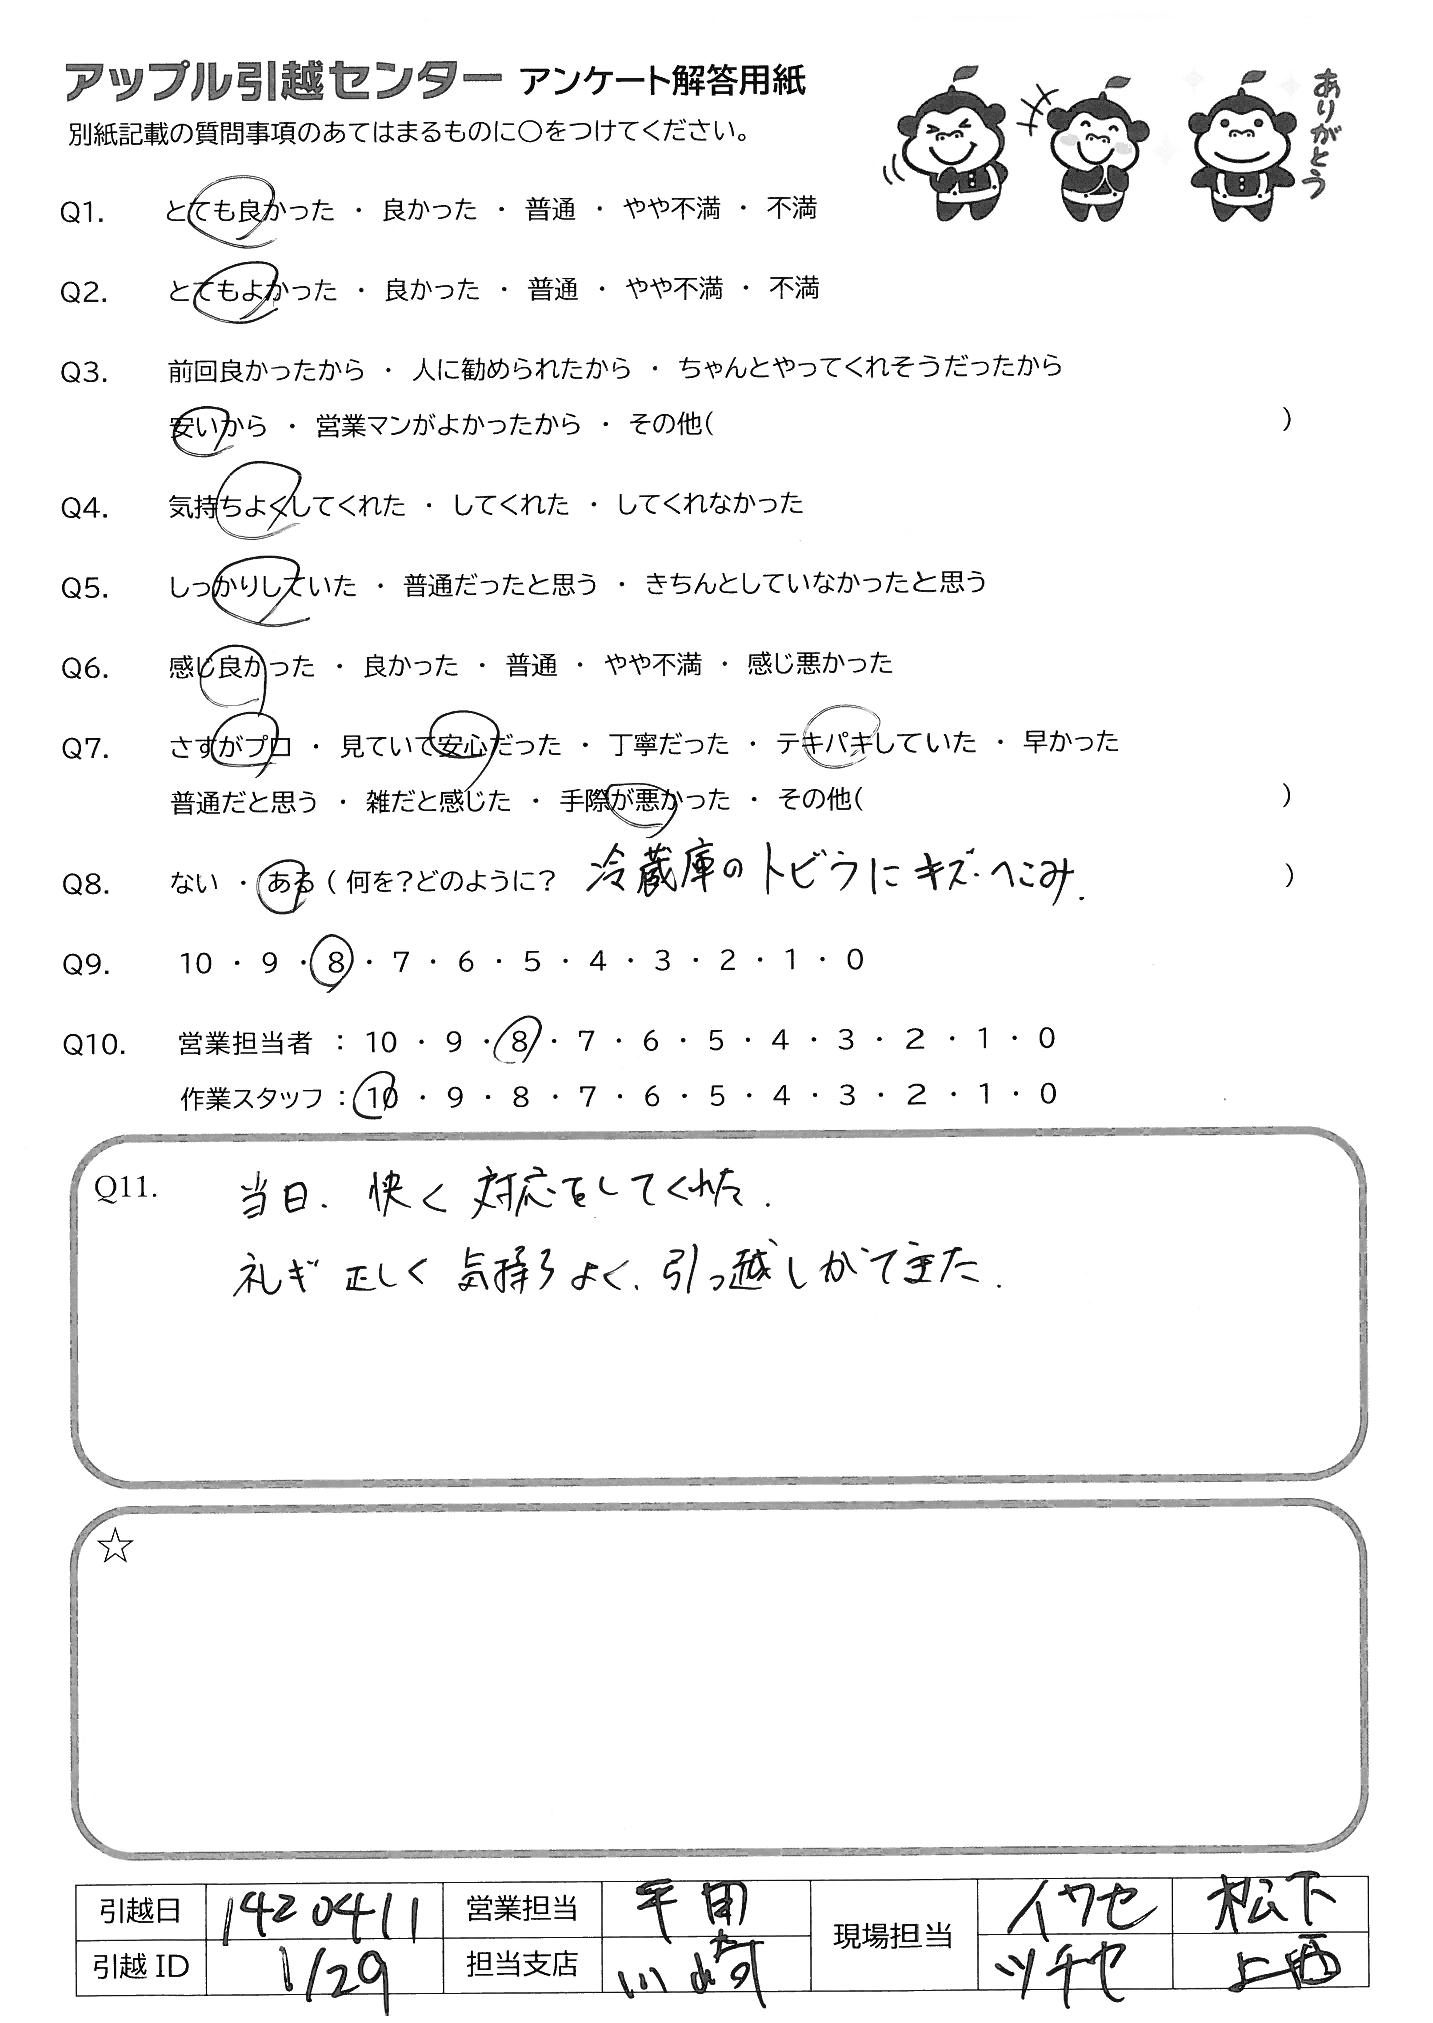 アップル引越センター アンケート解答用紙
ありがとう
別紙記載の質問事項のあてはまるものに○をつけてください。
Q1. とても良かった ・ 良かった ・ 普通 ・ やや不満 ・ 不満
Q2. とてもよかった ・ 良かった ・ 普通 ・ やや不満 ・ 不満
Q3. 前回良かったから ・ 人に勧められたから ・ ちゃんとやってくれそうだったから
安いから ・ 営業マンがよかったから ・ その他( )
Q4. 気持ちよくしてくれた ・ してくれた ・ してくれなかった
Q5. しっかりしていた ・ 普通だったと思う ・ きちんとしていなかったと思う
Q6. 感じ良かった ・ 良かった ・ 普通 ・ やや不満 ・ 感じ悪かった
Q7. さすがプロ ・ 見ていて安心だった ・ 丁寧だった ・ テキパキしていた ・ 早かった
普通だと思う ・ 雑だと感じた ・ 手際が悪かった ・ その他( )
Q8. ない ・ ある ( 何を?どのように? 冷蔵庫のトビラにキズ・へこみ. )
Q9. 10 ・ 9 ・ 8 ・ 7 ・ 6 ・ 5 ・ 4 ・ 3 ・ 2 ・ 1 ・ 0
Q10. 営業担当者 : 10 ・ 9 ・ 8 ・ 7 ・ 6 ・ 5 ・ 4 ・ 3 ・ 2 ・ 1 ・ 0
作業スタッフ : 10 ・ 9 ・ 8 ・ 7 ・ 6 ・ 5 ・ 4 ・ 3 ・ 2 ・ 1 ・ 0
Q11. 当日、快く対応をしてくれた.
礼ギ正しく気持ちよく、引っ越しができた.
☆
引越日 1420411 営業担当 平田 現場担当 イワセ 松下
引越 ID 1/29 担当支店 川崎 ツチヤ 上西